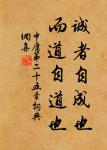 誠者自成也
而道自道也
中庸第二十五章詞典
網集